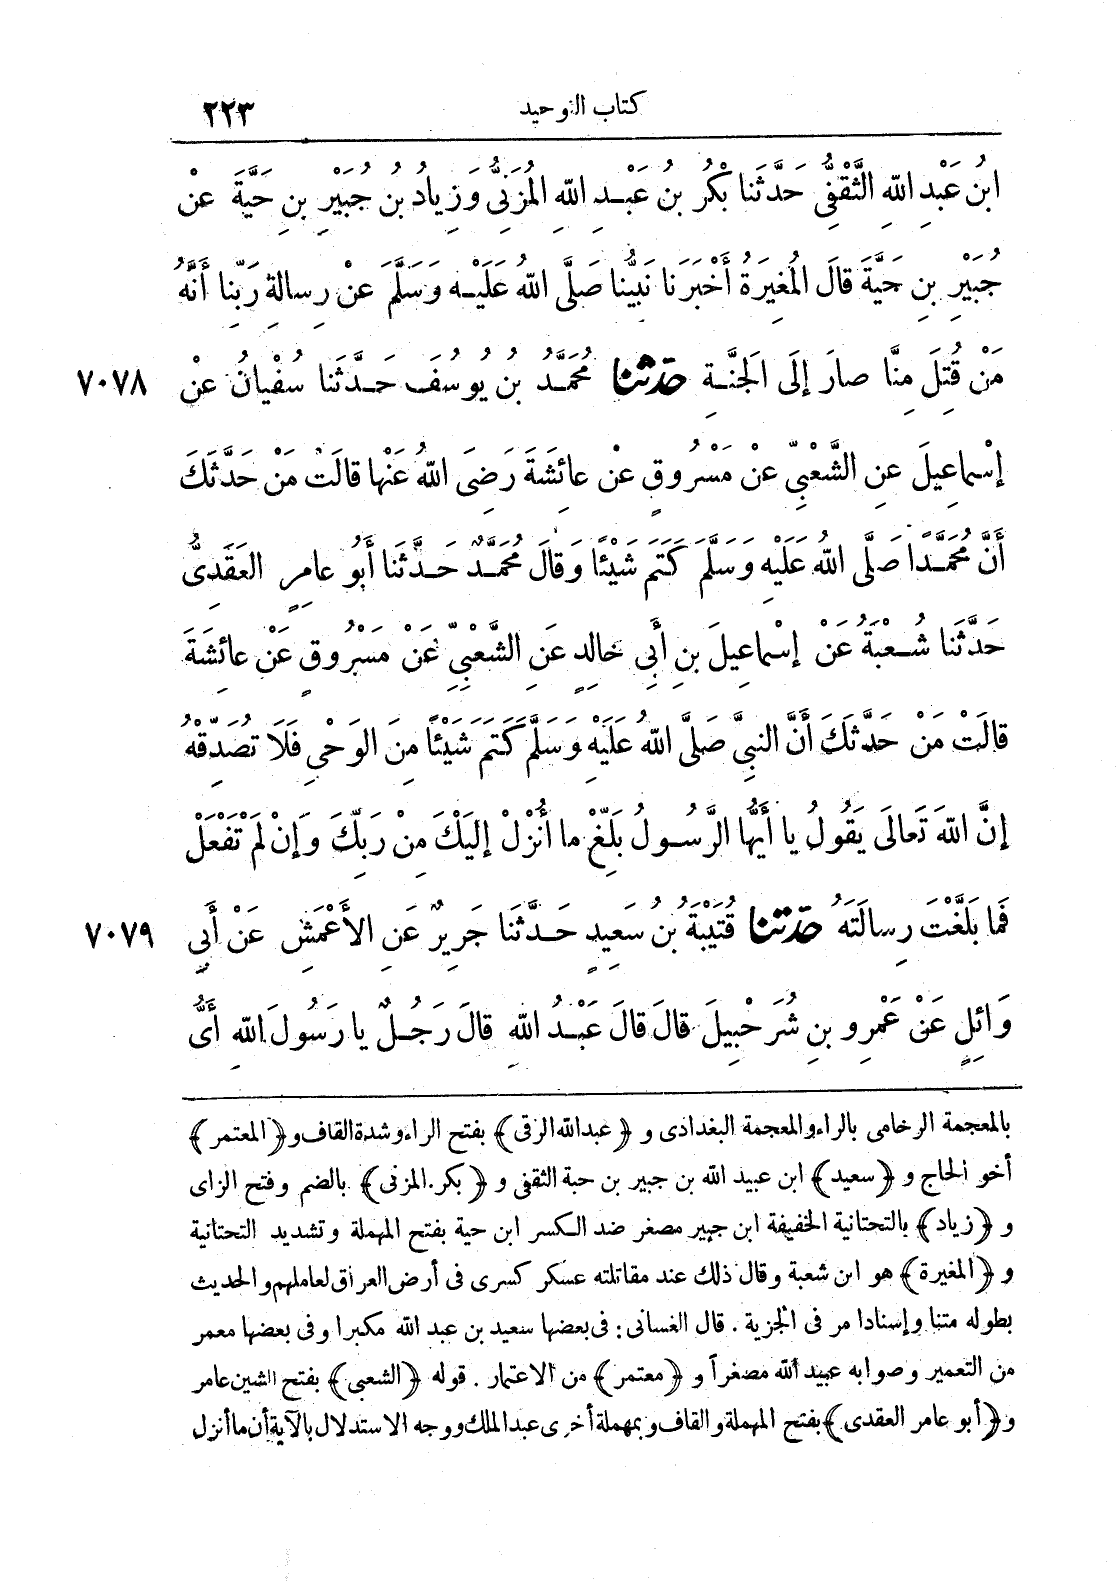 كتاب التوحيد ٢٢٣
ابنُ عَبْدِ اللهِ الثَّقَفِىُّ حَدَّثَنا بَكْرُ بنُ عَبْدِ اللهِ الْمُزَنِىُّ وزِيادُ بنُ جُبَيْرِ بنِ حَيَّةَ عنْ
جُبَيْرِ بنِ حَيَّةَ قالَ الْمُغِيرَةُ أَخْبَرَنا نَبِيُّنا صَلَّى اللهُ عَلَيْهِ وَسَلَّمَ عنْ رِسالةِ رَبِّنا أَنَّهُ
٧٠٧٨ مَنْ قُتِلَ مِنَّا صارَ إلَى الْجَنَّةِ حدّثنا مُحَمَّدُ بنُ يُوسُفَ حَدَّثَنا سُفْيانُ عنْ
إسْماعِيلَ عنِ الشَّعْبِيِّ عنْ مَسْرُوقٍ عنْ عائِشَةَ رَضِىَ اللهُ عَنْها قالَتْ مَنْ حَدَّثَكَ
أَنَّ مُحَمَّدًا صَلَّى اللهُ عَلَيْهِ وَسَلَّمَ كَتَمَ شَيْئًا وَقالَ مُحَمَّدٌ حَدَّثَنا أَبُو عامِرٍ العَقَدِىُّ
حَدَّثَنا شُعْبَةُ عَنْ إسْماعِيلَ بنِ أَبِي خالِدٍ عَنِ الشَّعْبِيِّ عَنْ مَسْرُوقٍ عَنْ عائِشَةَ
قالَتْ مَنْ حَدَّثَكَ أَنَّ النبِيَّ صَلَّى اللهُ عَلَيْهِ وَسَلَّمَ كَتَمَ شَيْئًا مِنَ الوَحْىِ فَلَا تُصَدِّقْهُ
إنَّ اللهَ تَعالَى يَقُولُ يا أَيُّها الرَّسُولُ بَلِّغْ ما أُنْزِلَ إلَيْكَ مِنْ رَبِّكَ وَإنْ لَمْ تَفْعَلْ
٧٠٧٩ فَما بَلَّغْتَ رِسالَتَهُ حدّثنا قُتَيْبَةُ بنُ سَعِيدٍ حَدَّثَنا جَرِيرٌ عَنِ الأَعْمَشِ عَنْ أَبِي
وَائِلٍ عَنْ عَمْرِو بنِ شُرَحْبِيلَ قالَ قالَ عَبْدُ اللهِ قالَ رَجُلٌ يا رَسُولَ اللهِ أَىُّ
بالمعجمة الرخامى بالراء والمعجمة البغدادى و ﴿عبد الله الرقى﴾ بفتح الراء وشدة القاف و ﴿المعتمر﴾
أخو الحاج و ﴿سعيد﴾ ابن عبيد الله بن جبير بن حية الثقفى و ﴿بكر المزنى﴾ بالضم وفتح الزاى
و ﴿زياد﴾ بالتحتانية الخفيفة ابن جبير مصغر ضد الكسر ابن حية بفتح المهملة وتشديد التحتانية
و ﴿المغيرة﴾ هو ابن شعبة وقال ذلك عند مقاتلته عسكر كسرى فى أرض العراق لعاملهم والحديث
بطوله متنا وإسنادا مر فى الجزية . قال الغسانى : فى بعضها سعيد بن عبد الله مكبرا وفى بعضها معمر
من التعمير وصوابه عبيد الله مصغراً و ﴿معتمر﴾ من الاعتمار . قوله ﴿الشعبي﴾ بفتح الشين عامر
و﴿أبو عامر العقدى﴾ بفتح المهملة والقاف وبمهملة أخرى عبد الملك ووجه الاستدلال بالآية أن ما أنزل